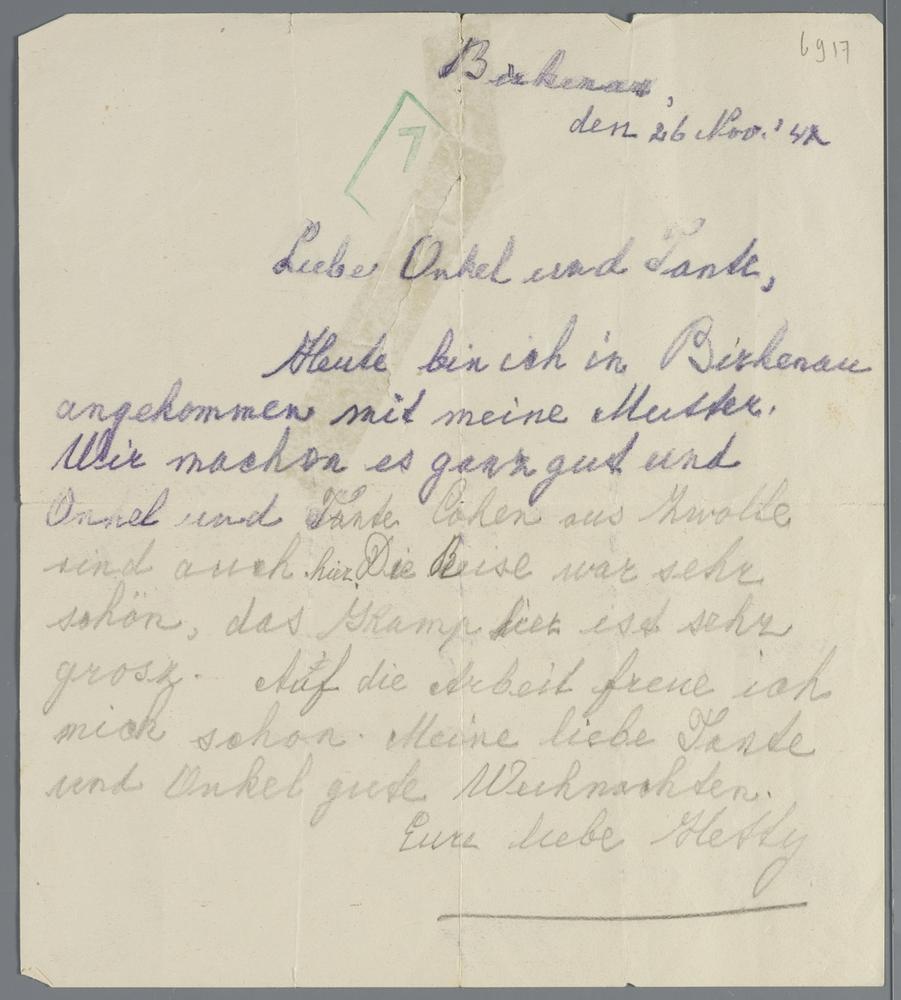 6917
Birkenau,
den 26 Nov.' 42
7
Liebe Onkel und Tante,
Heute bin ich in Birkenau
angekommen mit meine Mutter.
Wir machon es ganz gut und
Onkel und Tante Cohen aus Zwolle
sind auch hier. Die Reise war sehr
schön, das Kamp hier ist sehr
grosz. Auf die Arbeit freue ich
mich schon. Meine liebe Tante
und Onkel gute Weihnachten.
Eure liebe Hetty